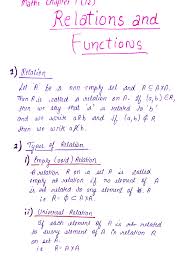 Maths Chapter 1 (12)
Relations and
Functions
1) Relation
Let A be a non empty set and R ⊆ A×A.
Then R is called a relation on A. If (a,b) ∈ R,
then we say that 'a' is related to 'b'
and we write aRb and if (a,b) ∉ R,
then we write aRb.
2) Types of Relation
i) Empty (void) Relation
A relation R on a set A is called
empty relation if no element of A
is related to any element of
i.e R = ∅ ⊂ A×A.
ii) Universal Relation
If each element of A is related
to every element of A in relation
on set A.
i.e R = A×A